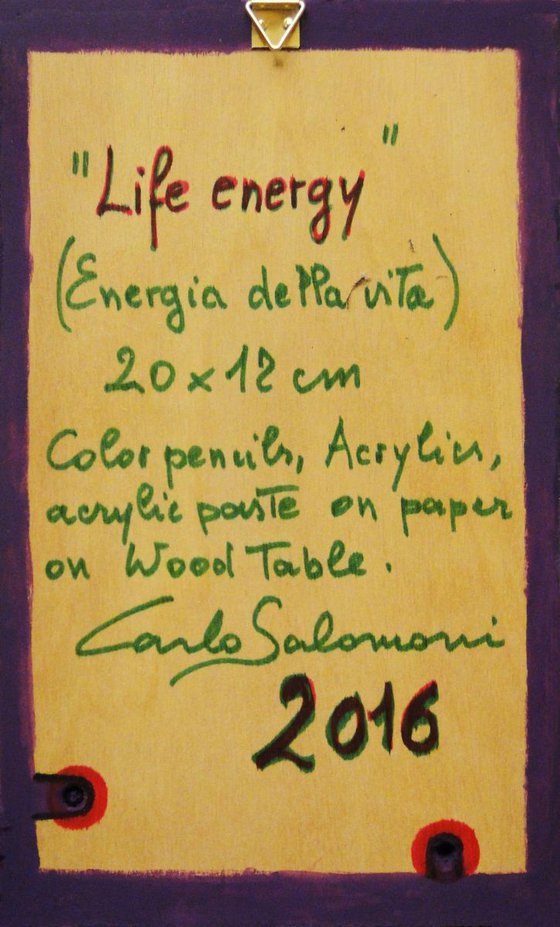 "Life energy"
(Energia della vita)
20 x 12 cm
Color pencils, Acrylics,
acrylic paste on paper
on Wood Table.
Carlo Salomoni
2016